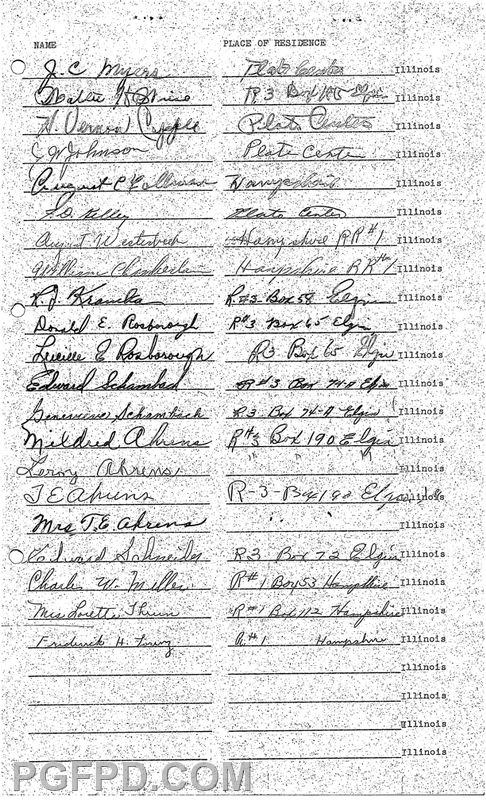 NAME PLACE OF RESIDENCE
J. C. Myers Plato Center Illinois
R 3 Box Elgin Illinois
H. Vernon Plato Center Illinois
Johnson Plato Center Illinois
August C Hampshire Illinois
Kelley Plato Center Illinois
August Westerbeck Hampshire RR#1 Illinois
William Chamberlain Hampshire RR#1 Illinois
R. J. R.#3-Box 58 Elgin Illinois
Donald E. Rosborough R#3 Box 65 Elgin Illinois
Lucille E Rosborough R3 Box 65 Elgin Illinois
Edward Schambach R#3 Box 74-A Elgin Illinois
Genevieve Schambach R3 Box 74-A Elgin Illinois
Mildred Ahrens R#3 Box 190 Elgin Illinois
Leroy Ahrens " " " Illinois
T E Ahrens R-3-Box 190 Elgin Illinois
Mrs T. E. Ahrens " " Illinois
Edward Schneider R3 Box 72 Elgin Illinois
Charles W. Miller R#1 Box 53 Hampshire Illinois
Mrs Loretta Thrun R#1 Box 112 Hampshire Illinois
Frederick H. R.#1 Hampshire Illinois
Illinois
Illinois
Illinois
Illinois
PGFPD.COM